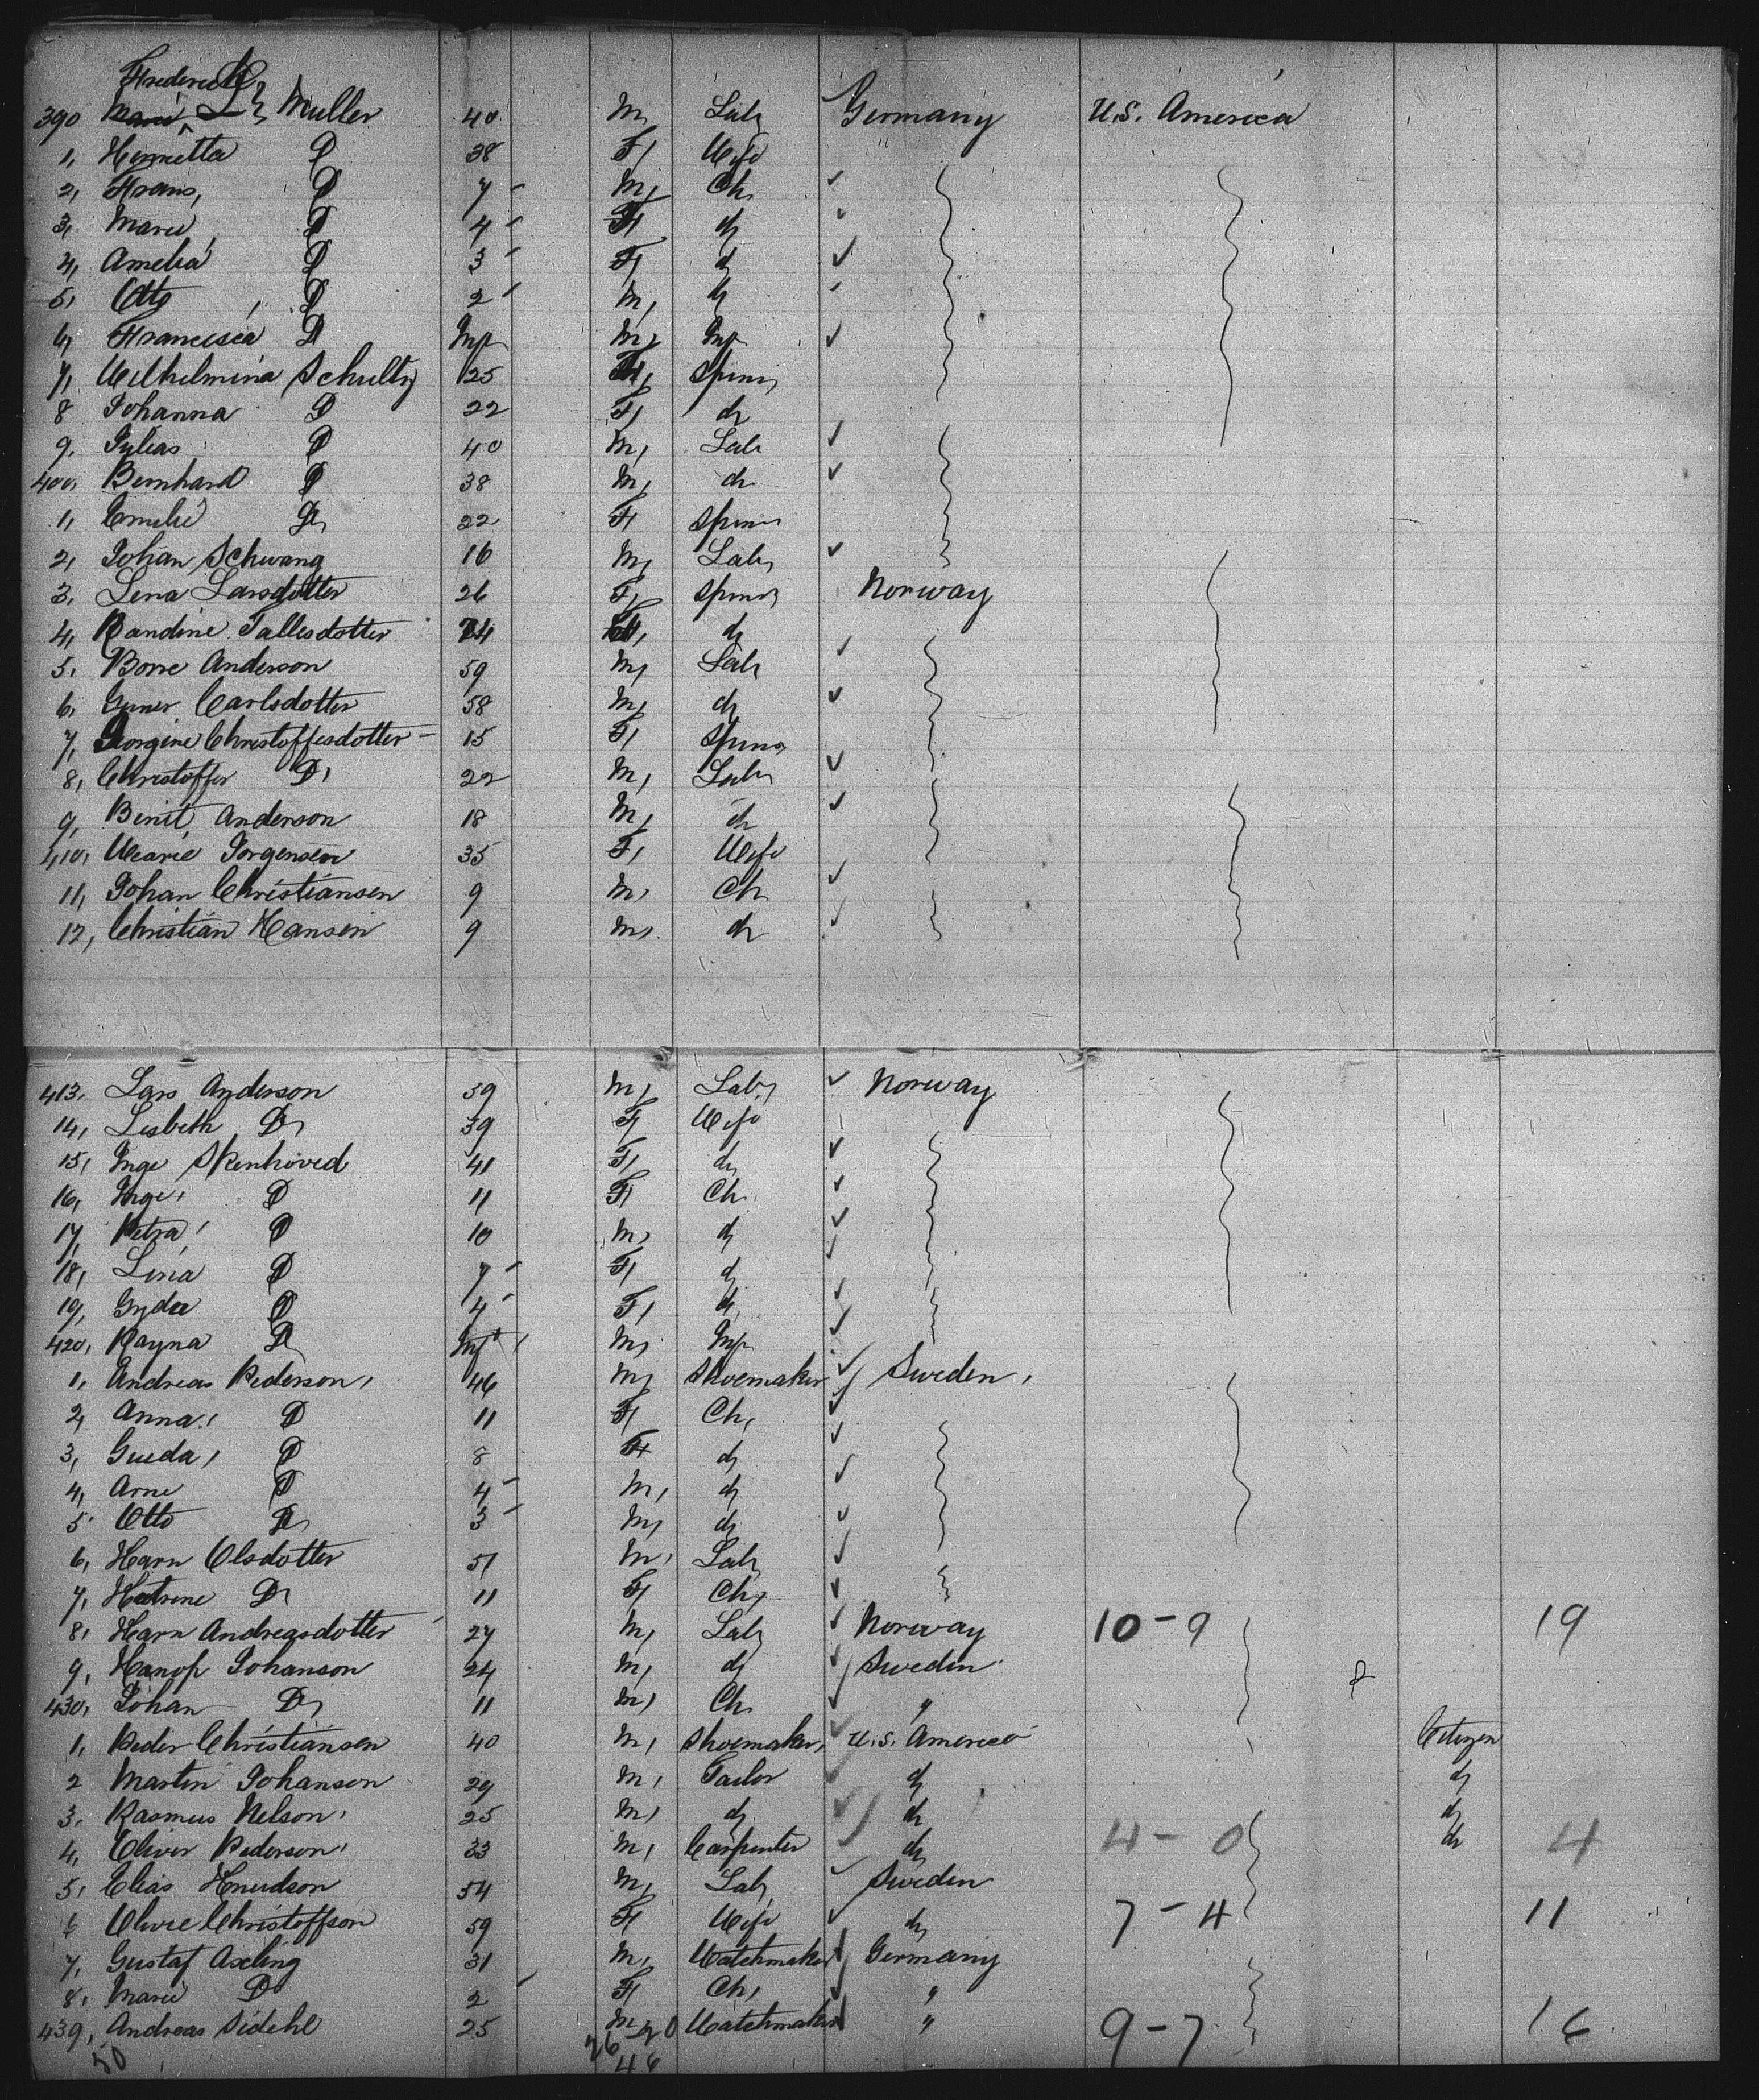 Frederick
390 Marie L, Muller 40 M, Lab, Germany U.S. America
1, Henrietta D 38 F, Wife
2, Frans, D 7 M, Ch,
3, Marie, D 4 F, d,
4, Amelia D 3 F, d,
5, Otto, D 2 M, d,
6, Francisca D Inf M, Inf
7, Wilhelmina Schultz 25 F, Spins,
8 Johanna D 22 F, do
9, Julias D 40 M, Lab
400, Bernhard D 38 M, do
1, Emilie Do, 22 F, Spins
2, Johan Schwang 16 M, Lab,
3, Lena Larsdotter 26 F, Spins, Norway
4, Randine Tallesdotter 24 F, do
5, Borre Anderson 59 M, Lab,
6, Guner Carlsdotter 58 M, do
7, Georgine Christoffesdotter 15 F, Spins,
8, Christoffer D, 22 M, Lab,
9, Binit Anderson 18 M, do
410, Marie Jorgensen 35 F, Wife
11, Johan Christiansen 9 M, Ch,
12, Christian Hansen 9 M, do
413, Lars Anderson 59 M, Lab, Norway
14, Lisbeth D, 39 F, Wife
15, Inge Skenhoved 41 F, do
16, Inge, D 11 F, Ch,
17, Petra, D 10 M, d,
18, Lina D 7 F, d,
19, Gyda D 4 F, d,
420, Rayna Do Inf M, Inf
1, Andreas Pederson, 46 M, Shoemaker Sweden,
2, Anna, D 11 F, Ch,
3, Gueda, D 8 F, d,
4, Arne D 4 M, d,
5 Otto Do 3 M, d,
6, Karn Olsdotter 51 M, Lab,
7, Katrine D, 11 F, Ch,
8, Karn Andreasdotter 27 M, Lab, Norway 10-9 19
9, Hanop Johanson 24 M, d, Sweden
430, Johan D, 11 M, Ch, "
1, Peder Christiansen 40 M, Shoemaker, U.S. America Citizen
2 Martin Johanson 29 M, Tailor d, d,
3, Rasmus Nelson, 25 M, d, do d,
4, Oliver Pederson, 33 M, Carpenter do 4-0 do 4
5, Elias Knudson 54 M, Lab, Sweden
6 Olivie Christoffson 59 F, Wife do 7-4 11
7, Gustaf Axeling 31 M, Watchmaker Germany
8, Marie D 2 F, Ch, "
439, Andreas Sidehl 25 M Watchmaker " 9-7 16
50 26-20
46